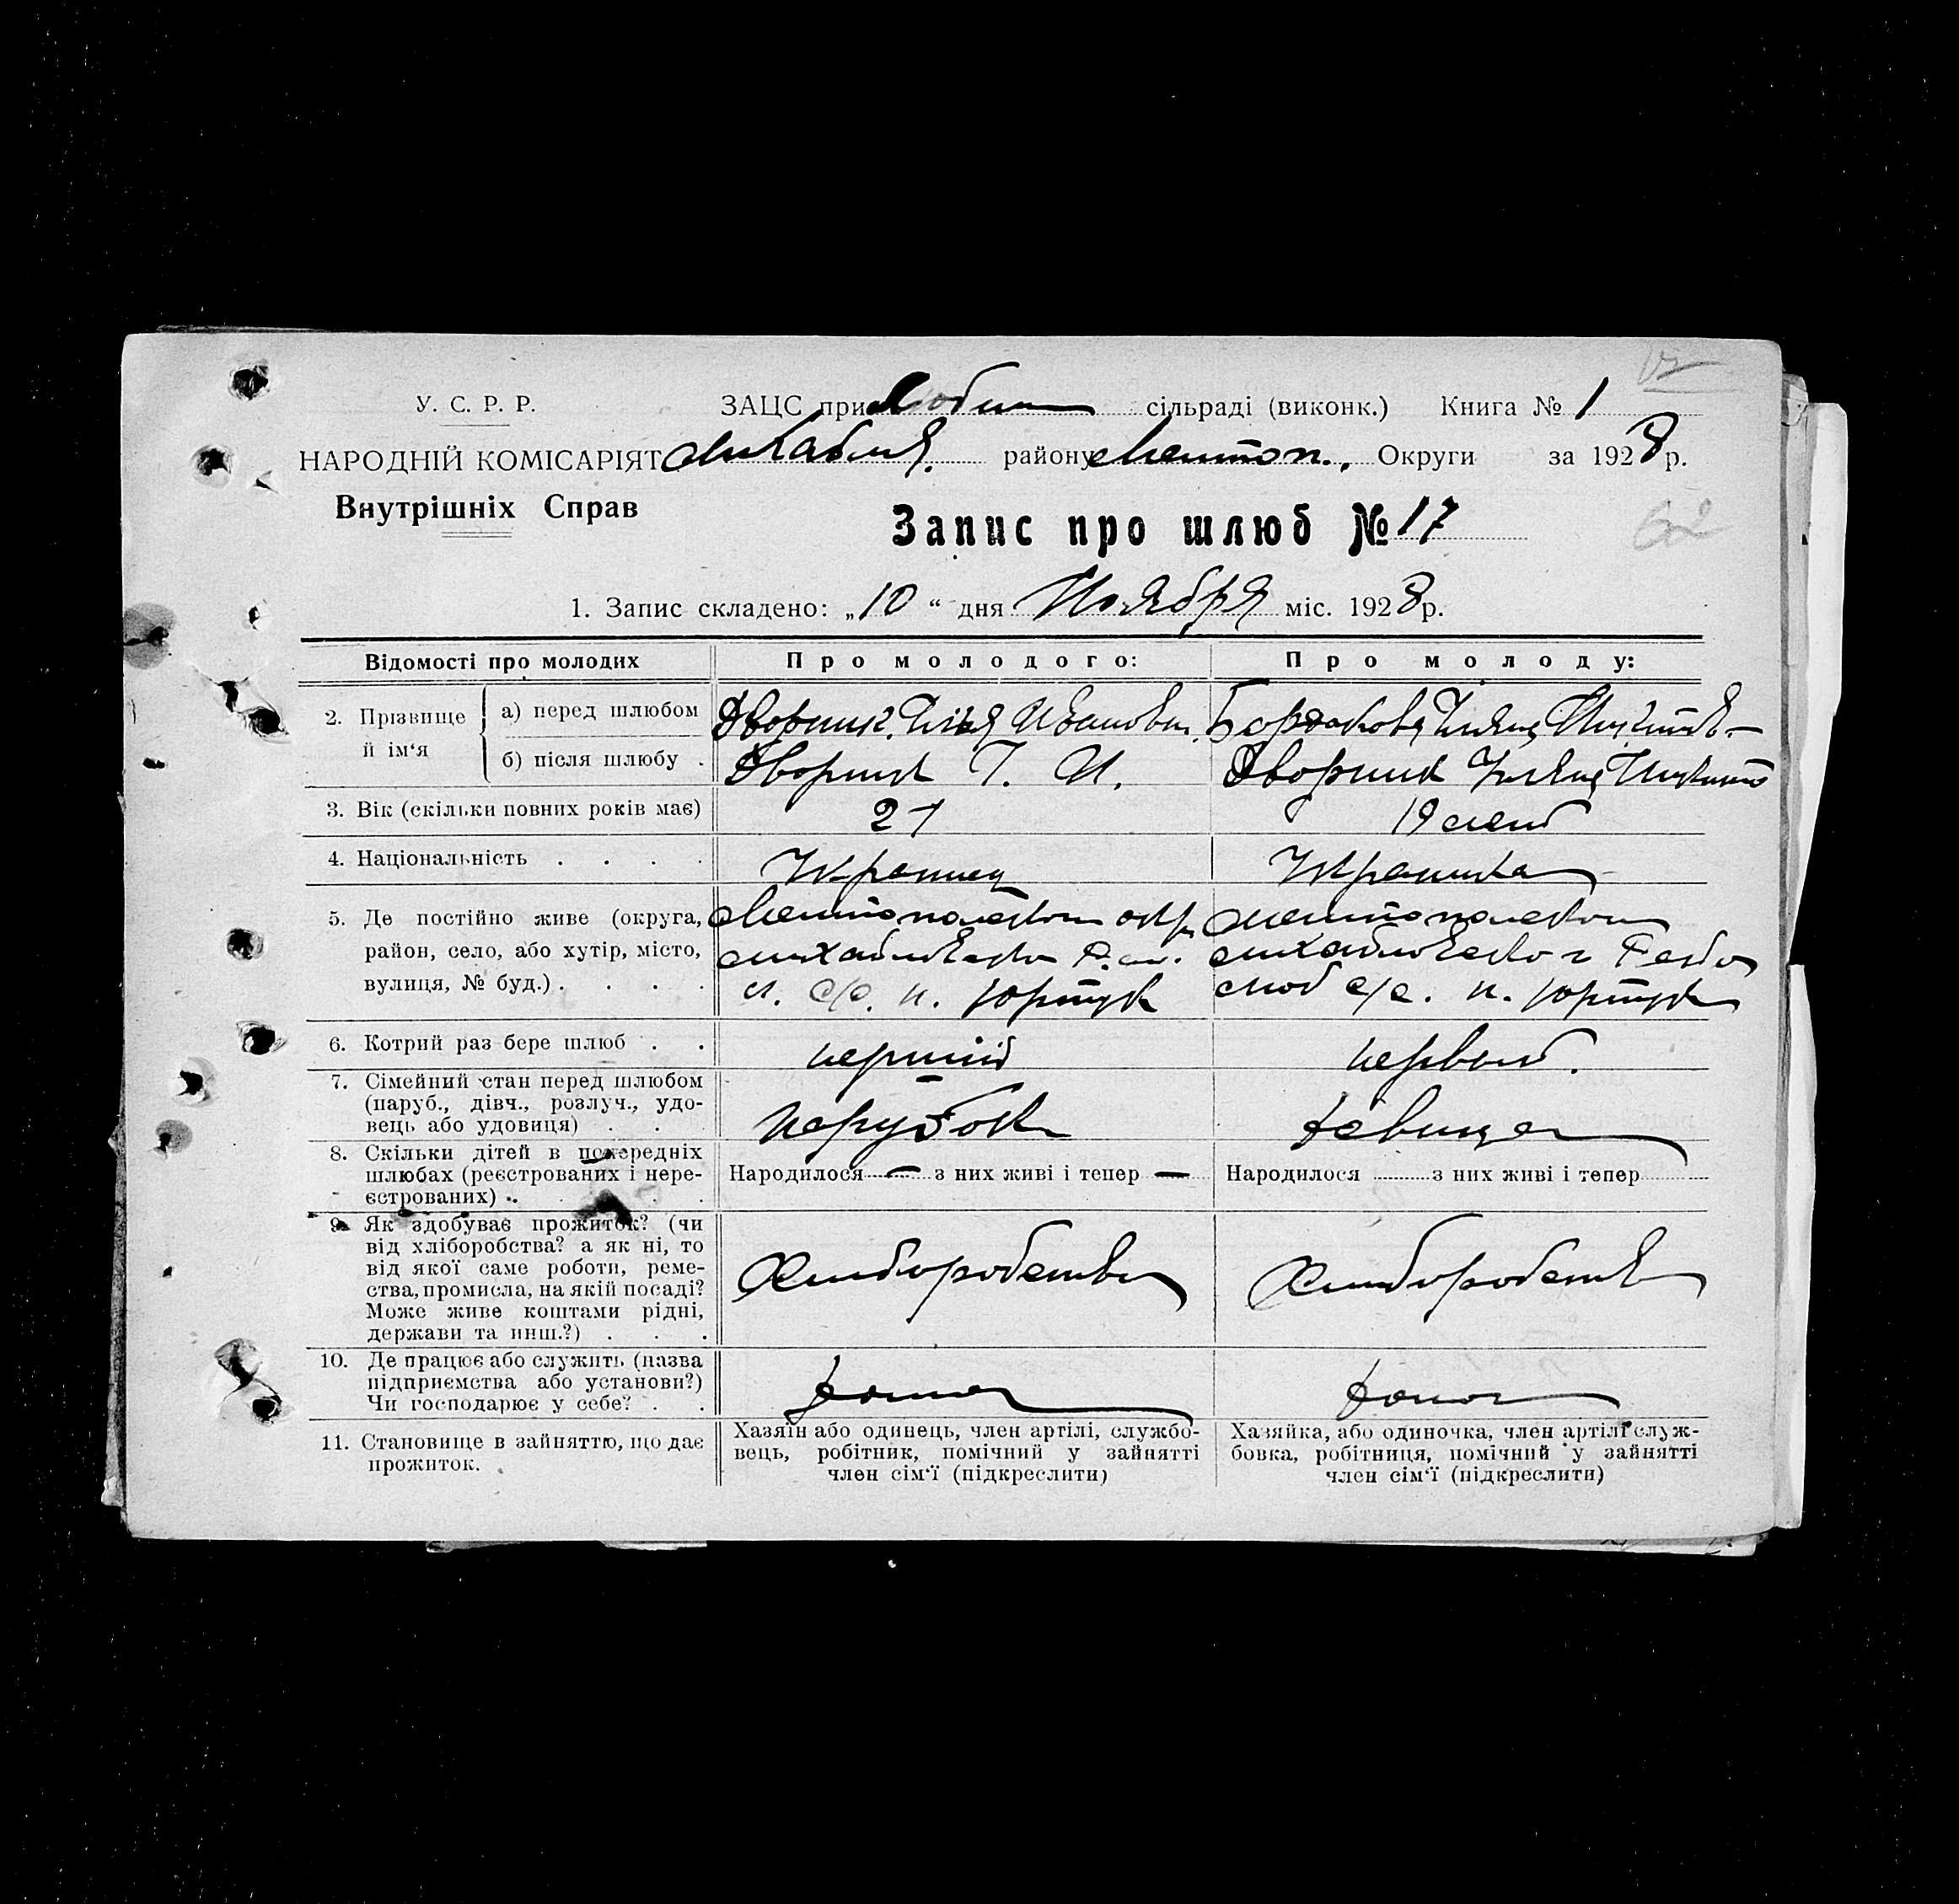 У. С. Р. Р. ЗАЦС при Любим сільраді (виконк.) Книга № 1
НАРОДНІЙ КОМІСАРІЯТ Михайлів. району Мелітоп., Округи за 1928 р.
Внутрішніх Справ
Запис про шлюб № 17
62
1. Запис складено: „10“ дня Ноября міс. 1928 р.
Відомості про молодих Про молодого: Про молоду:
2. Прізвище й ім‘я
а) перед шлюбом Дворник Ілья Іванови.
б) після шлюбу . Дворник І. И. Дворник
3. Вік (скільки повних років має) 21 19 лет
4. Національність . . . . Украинец Украинка
5. Де постійно живе (округа, район, село, або хутір, місто, вулиця, № буд.) . . . .
Мелитопольском окр. Мелитопольском
Михайловского Р. Михайловского
Л. С/С. п. Юртук Люб с/с. п. Юртук
6. Котрий раз бере шлюб . . перший первый.
7. Сімейний стан перед шлюбом
(паруб., дівч., розлуч., удо-
вець або удовиця) . . Парубок девица
8. Скільки дітей в попередніх
шлюбах (реєстрованих і нере-
єстрованих) . . Народилося — з них живі і тепер — Народилося з них живі і тепер
9. Як здобуває прожиток? (чи
від хліборобства? а як ні, то
від якої саме роботи, реме-
ства, промисла, на якій посаді?
Може живе коштами рідні,
держави та инш.?) . . . Хлиборобство Хлиборобство
10. Де працює або служить (назва
підприємства або установи?)
Чи господарює у себе? . . дома дома
11. Становище в зайняттю, що дає
прожиток.
Хазяїн або одинець, член артілі, службо-
вець, робітник, помічний у зайнятті
член сім‘ї (підкреслити)
Хазяйка, або одиночка, член артілі служ-
бовка, робітниця, помічний у зайнятті
член сім‘ї (підкреслити)